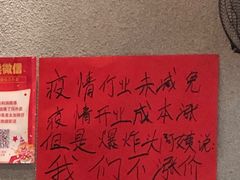 疫情行业未减免
疫情开业成本涨
但是爆炸头阿姨说:
我们不涨价
微信